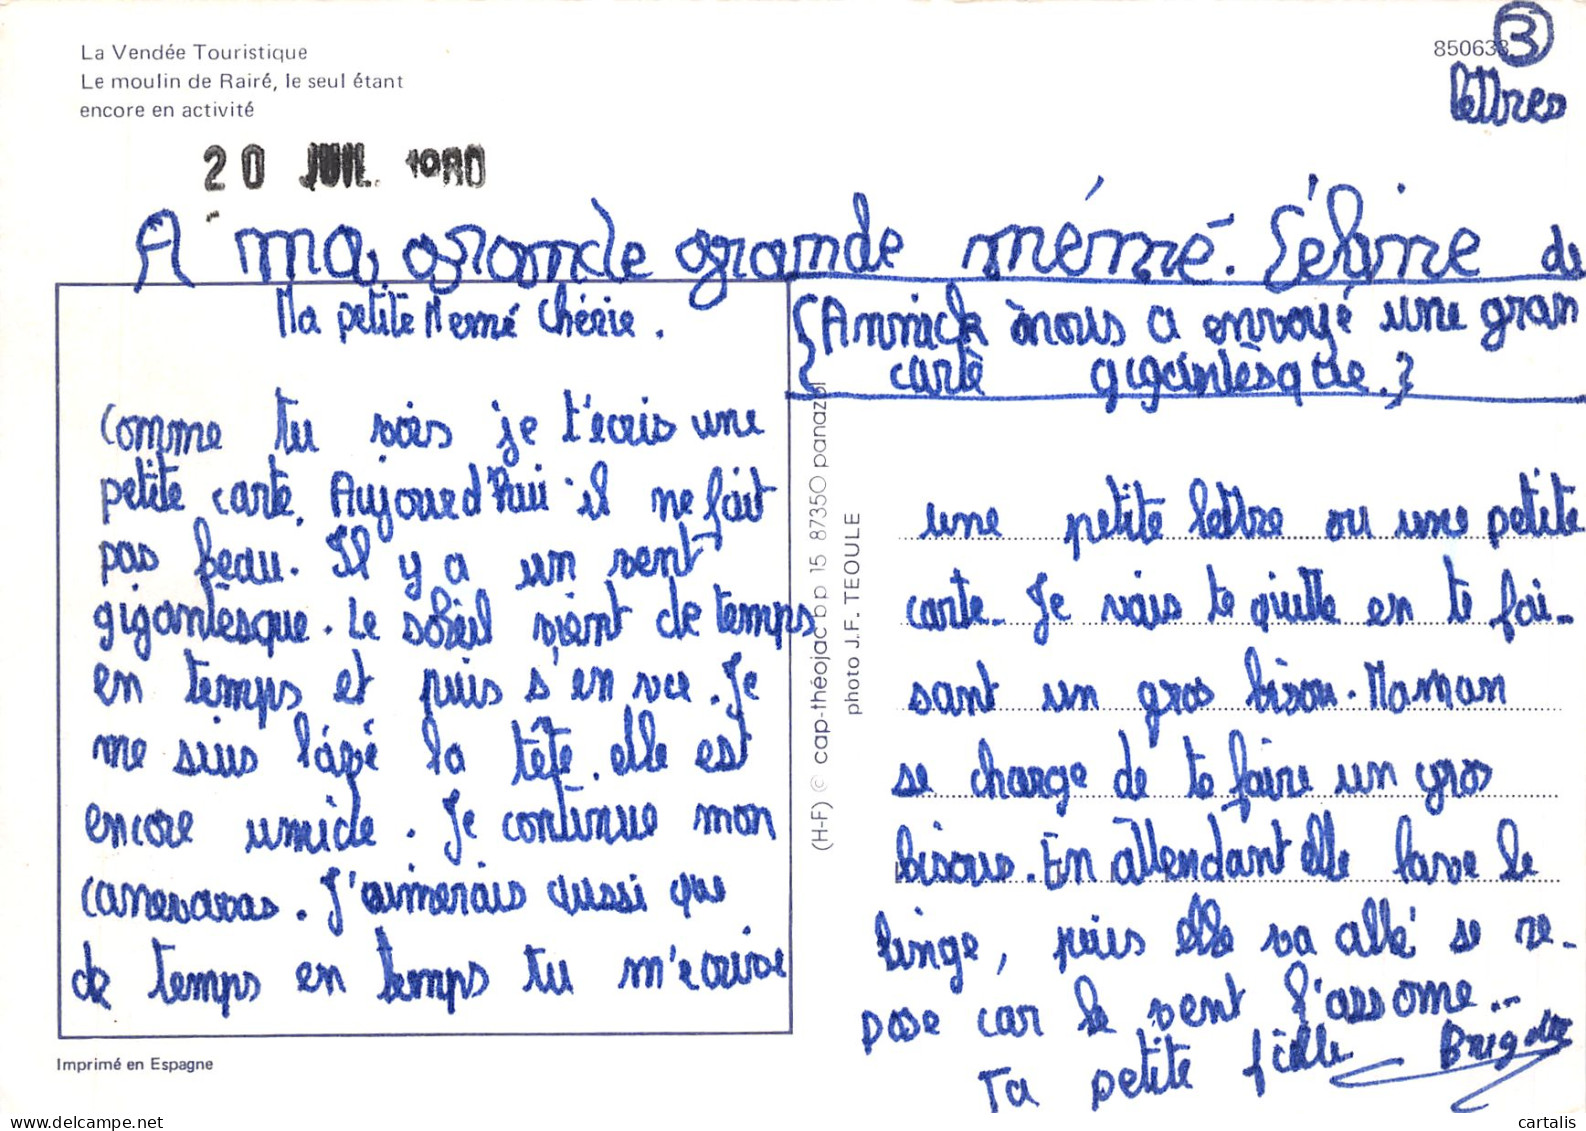 La Vendée Touristique
Le moulin de Rairé, le seul étant
encore en activité
850633
3
lettres
20 JUIL. 1980
A ma grande grande mémé. Céline de
Ma petite Memé Chérie.
{Annick ànous a envoyé une gran
carte gigantèsque.}
comme tu vois je t'écris une
petite carte. Aujourd'hui il ne fait
pas beau. Il y a un vent
gigantèsque. Le soleil vient de temps
en temps et puis s'en vea. Je
me suis lávé la tête. elle est
encore umide. Je continue mon
canevavas. J'aimerais aussi que
de temps en temps tu m'écrive
une petite lettre ou une petite
carte. Je vais te quitte en te fai-
sant un gros bisou. Maman
se charge de te faire un gros
bisous. En attendant elle lave le
linge, puis elle va allé se re-
pose car le vent l'assome...
Ta petite fille Brigitte
(H-F) © cap-théojac bp 15 87350 panazol
photo J.F. TEOULE
Imprimé en Espagne
cartalis